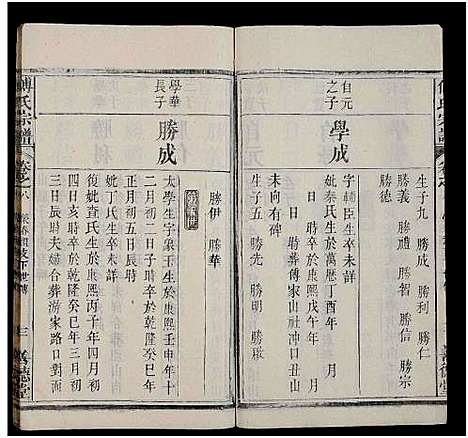 生子九 勝成 勝利 勝仁
勝義 勝禮 勝智 勝信 勝宗
勝德
自元
之子
學成
字輔臣生卒未詳
妣奈氏生於萬歷丁酉年 月
日 時卒於康熙戊午年 月
日 時合葬傅家山社山中
生子五 勝先 勝明 勝啟
勝伊 勝華
學華
長子
勝成
太學生字東王生於康熙壬申年十
二月初二日子時卒於乾隆癸巳年
正月初五日辰時
妣丁氏生卒未詳
復妣查氏生於康熙丙子年四月初
六日亥時卒於乾隆癸巳年三月初
三日辰時夫婦合葬游家路口対
傅氏宗譜
卷之八
三
善德堂